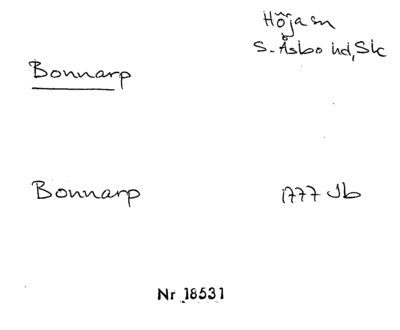 Höja sn
S. Åsbo hd, Sk
Bonnarp
Bonnarp 1777 Jb
Nr 18531